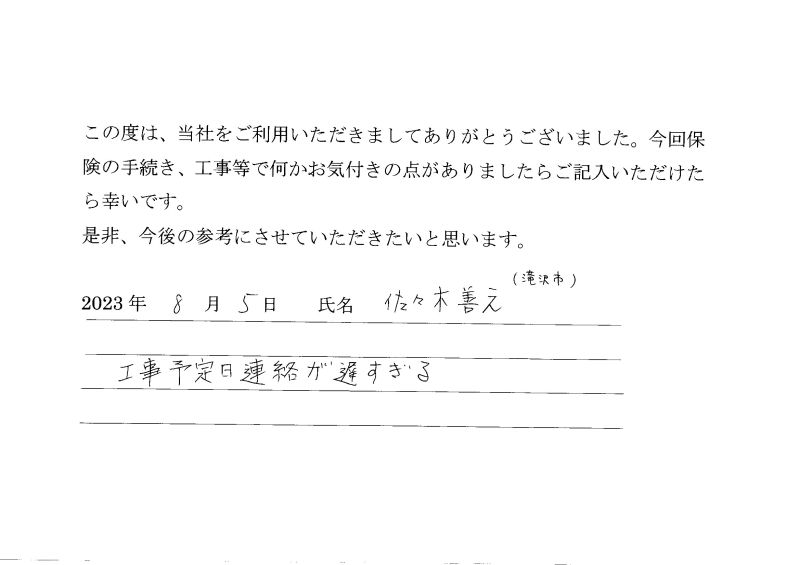 この度は、当社をご利用いただきましてありがとうございました。今回保
険の手続き、工事等で何かお気付きの点がありましたらご記入いただけた
ら幸いです。
是非、今後の参考にさせていただきたいと思います。
(滝沢市)
2023年 8月 5日 氏名 佐々木善元
工事予定日連絡が遅すぎる